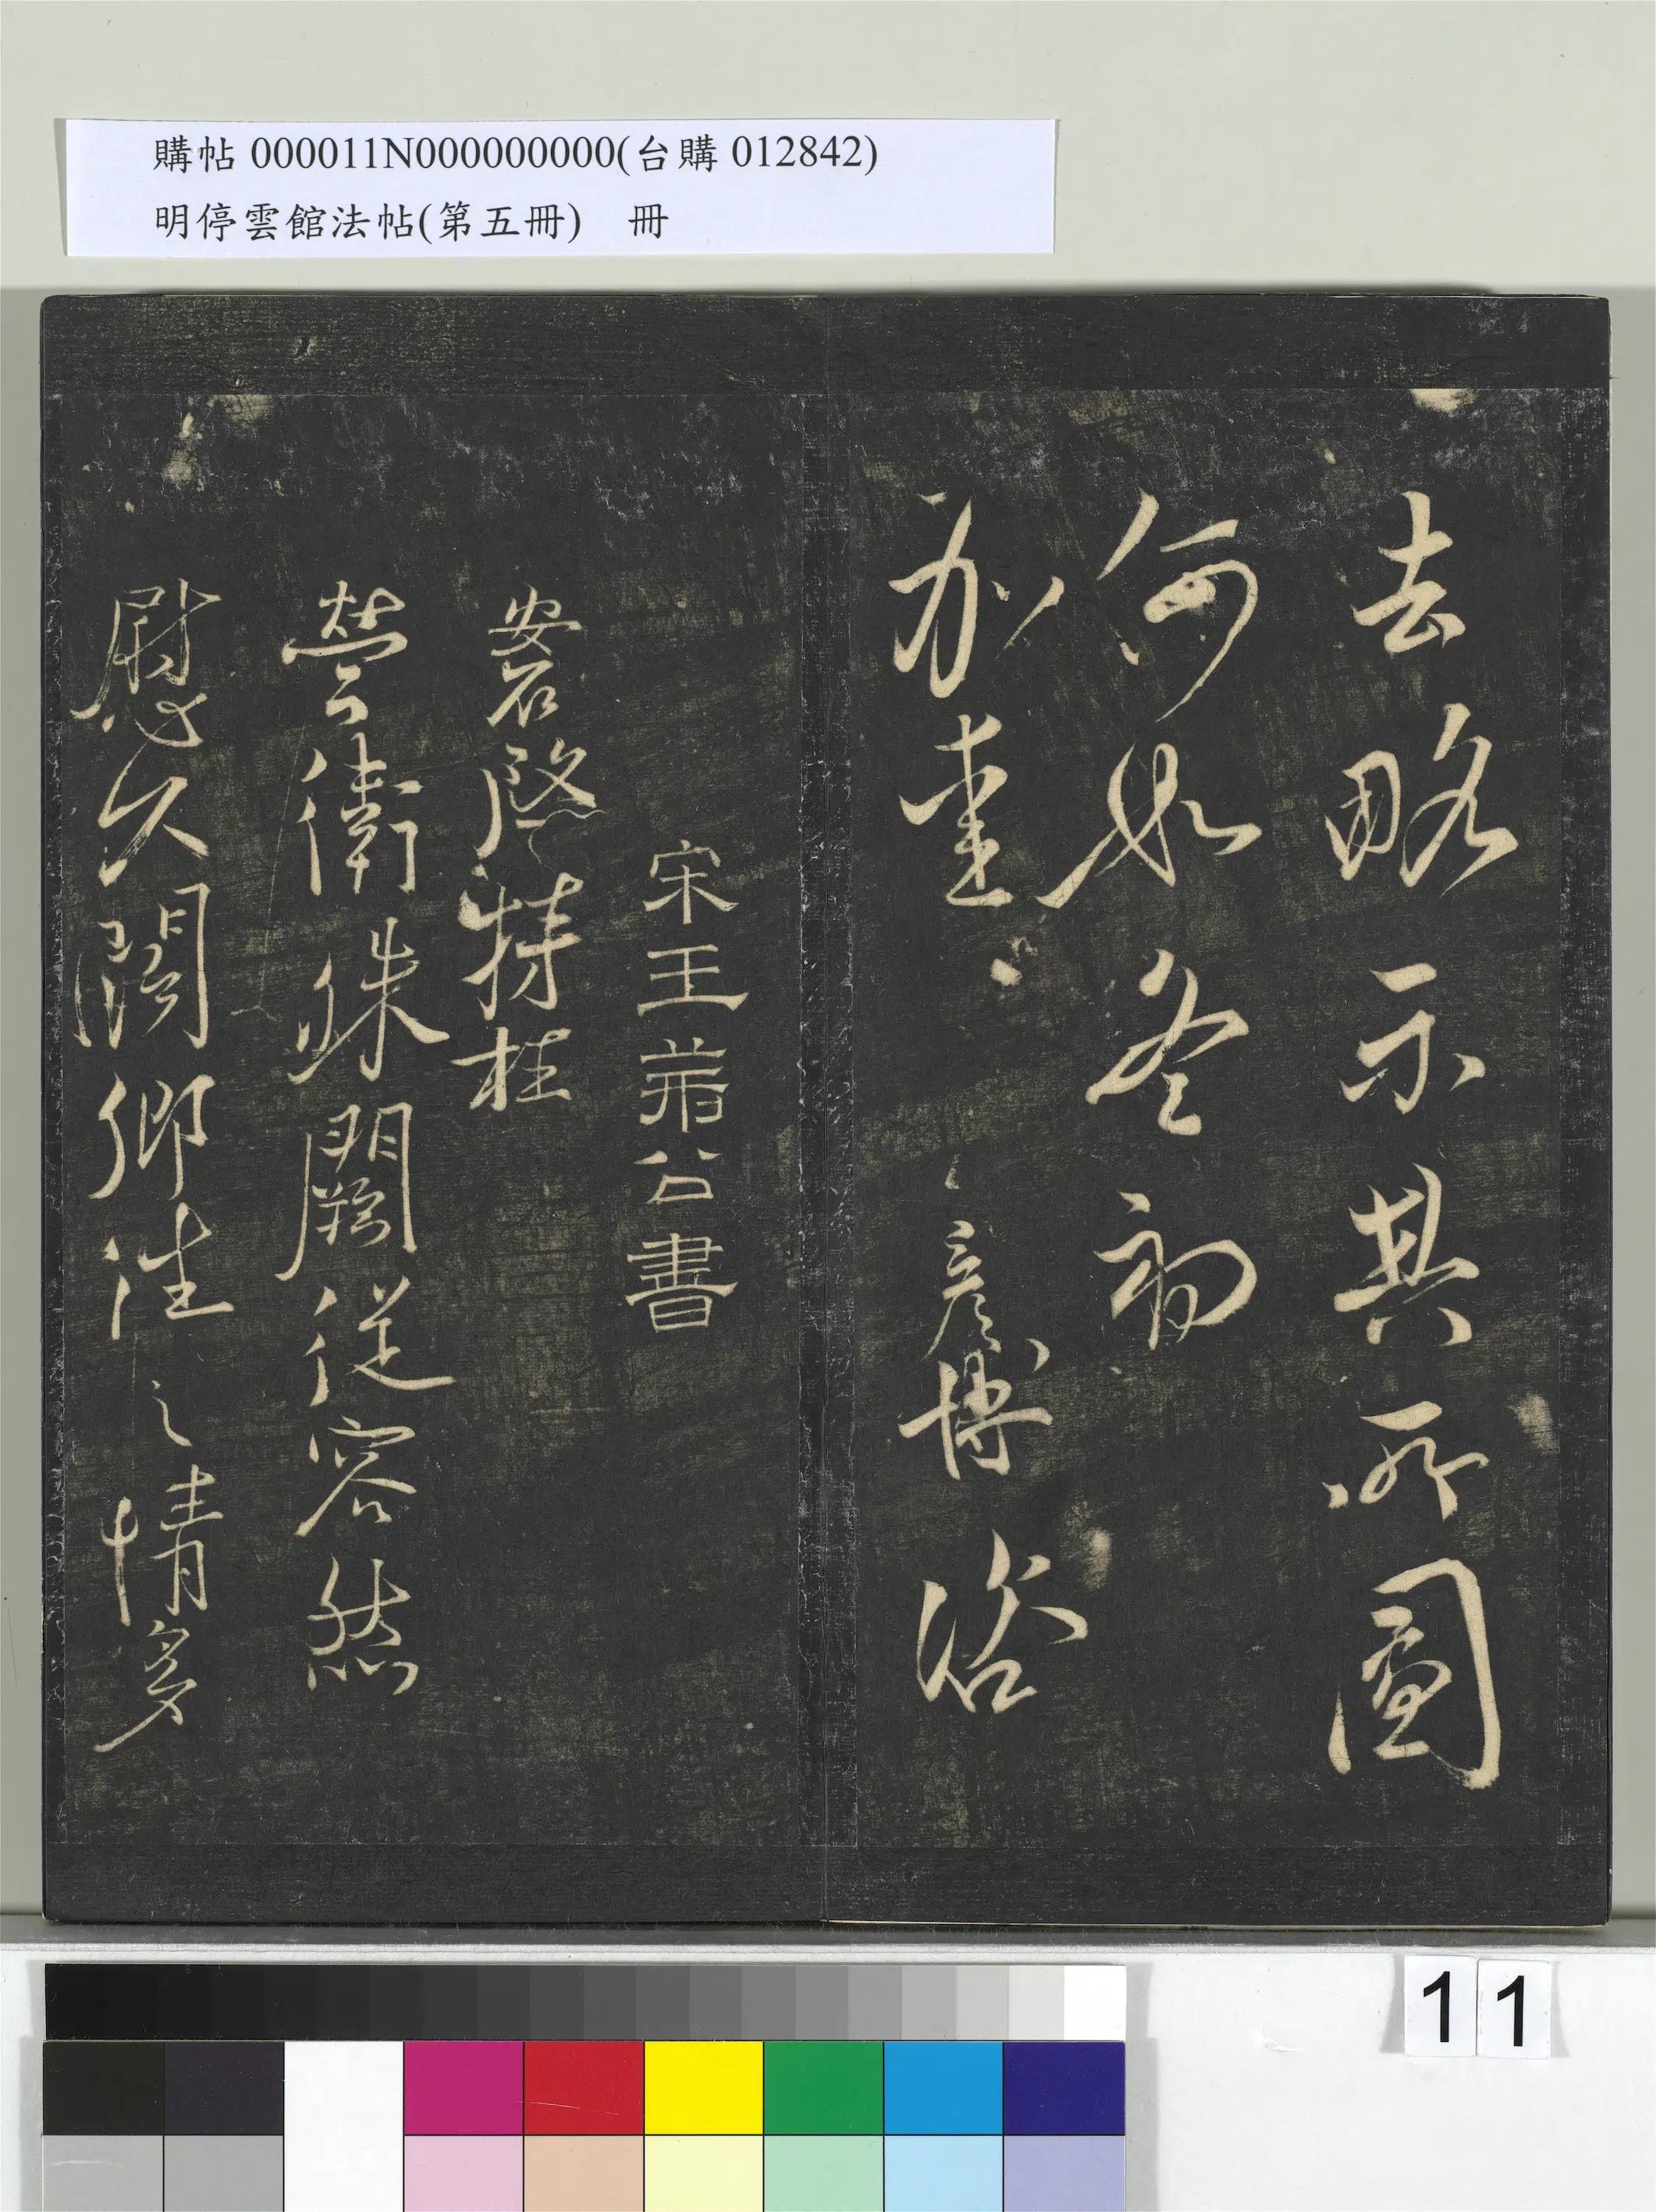 購帖 000011N000000000(台購 012842)
明停雲館法帖(第五冊) 冊
去略示其所圖
何如冬初
加重 彥博 咨
宋王荊公書
安石啟特枉
營衛殊闕從容然
慰久闊鄉往之情多
11